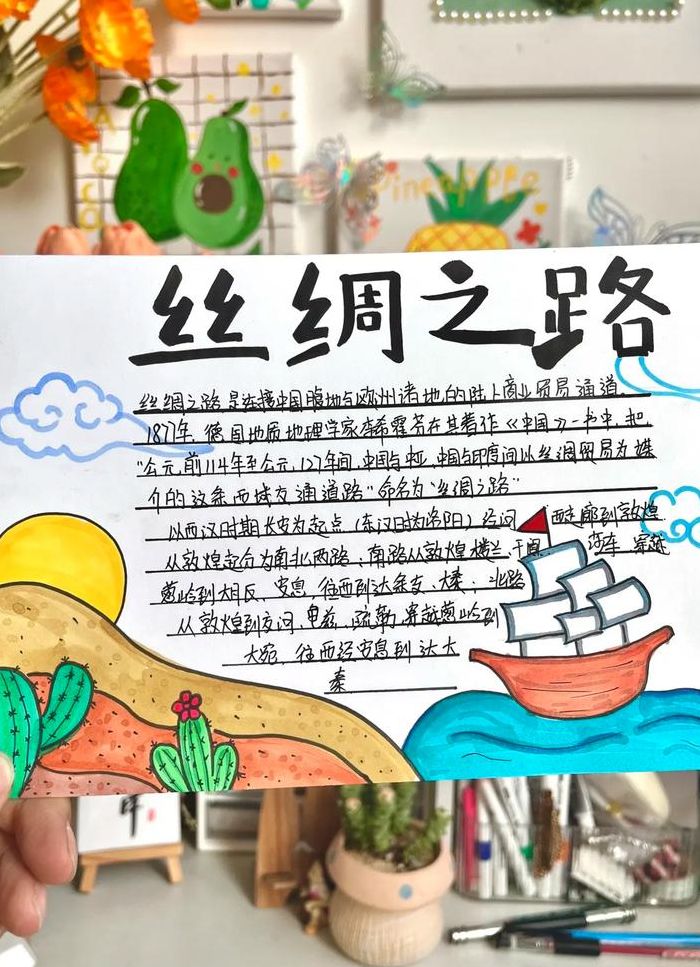 Pineapple
丝绸之路
丝绸之路是连接中国腹地与欧州诸地的陆上商业贸易通道,
1877年,德国地质地理学家李希霍芬在其著作《中国》一书中,把
"公元前114年至公元127年间,中国与中亚、中国与印度间以丝绸贸易为媒
介的这条西域交通道路"命名为"丝绸之路"
以西汉时期长安为起点(东汉时为洛阳)经河西走廊到敦煌.
从敦煌起分为南北两路:南路从敦煌、楼兰、于阗、莎车、穿越
葱岭到大月氏、安息,往西到达条支、大秦;北路
从敦煌到交河、龟兹、疏勒、穿越葱岭到
大宛,往西经安息到达大
秦